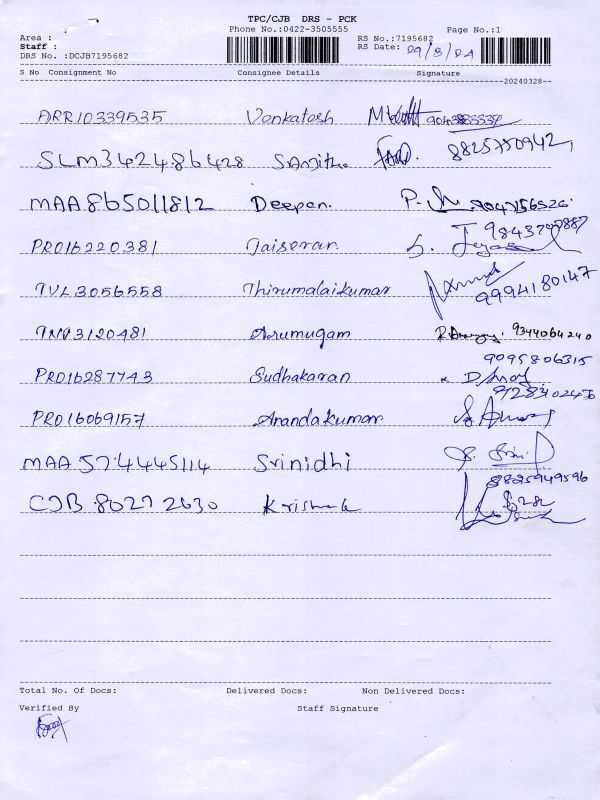 TPC/CJB DRS - PCK
Phone No.:0422-3505555 Page No.:1
Area : RS No.:7195682
Staff : RS Date: 29/3/24
DRS No. :DCJB7195682
S No Consignment No Consignee Details Signature
20240328
ARR10339535 Venkatesh
SLM342486428 Sanjitha 8825750942
MAA865011812 Deepan.
PRO16220381 Jaiseran.
TVL3056558 Thirumalaikumar 9994180147
TNV3120481 Arumugam 9344064240
9095806315
PRO16287743 Sudhakaran
PRO16069157 Anandakumar
MAA574445114 Srinidhi
8825949596
CJB 80272630
Total No. Of Docs: Delivered Docs: Non Delivered Docs:
Verified By Staff Signature